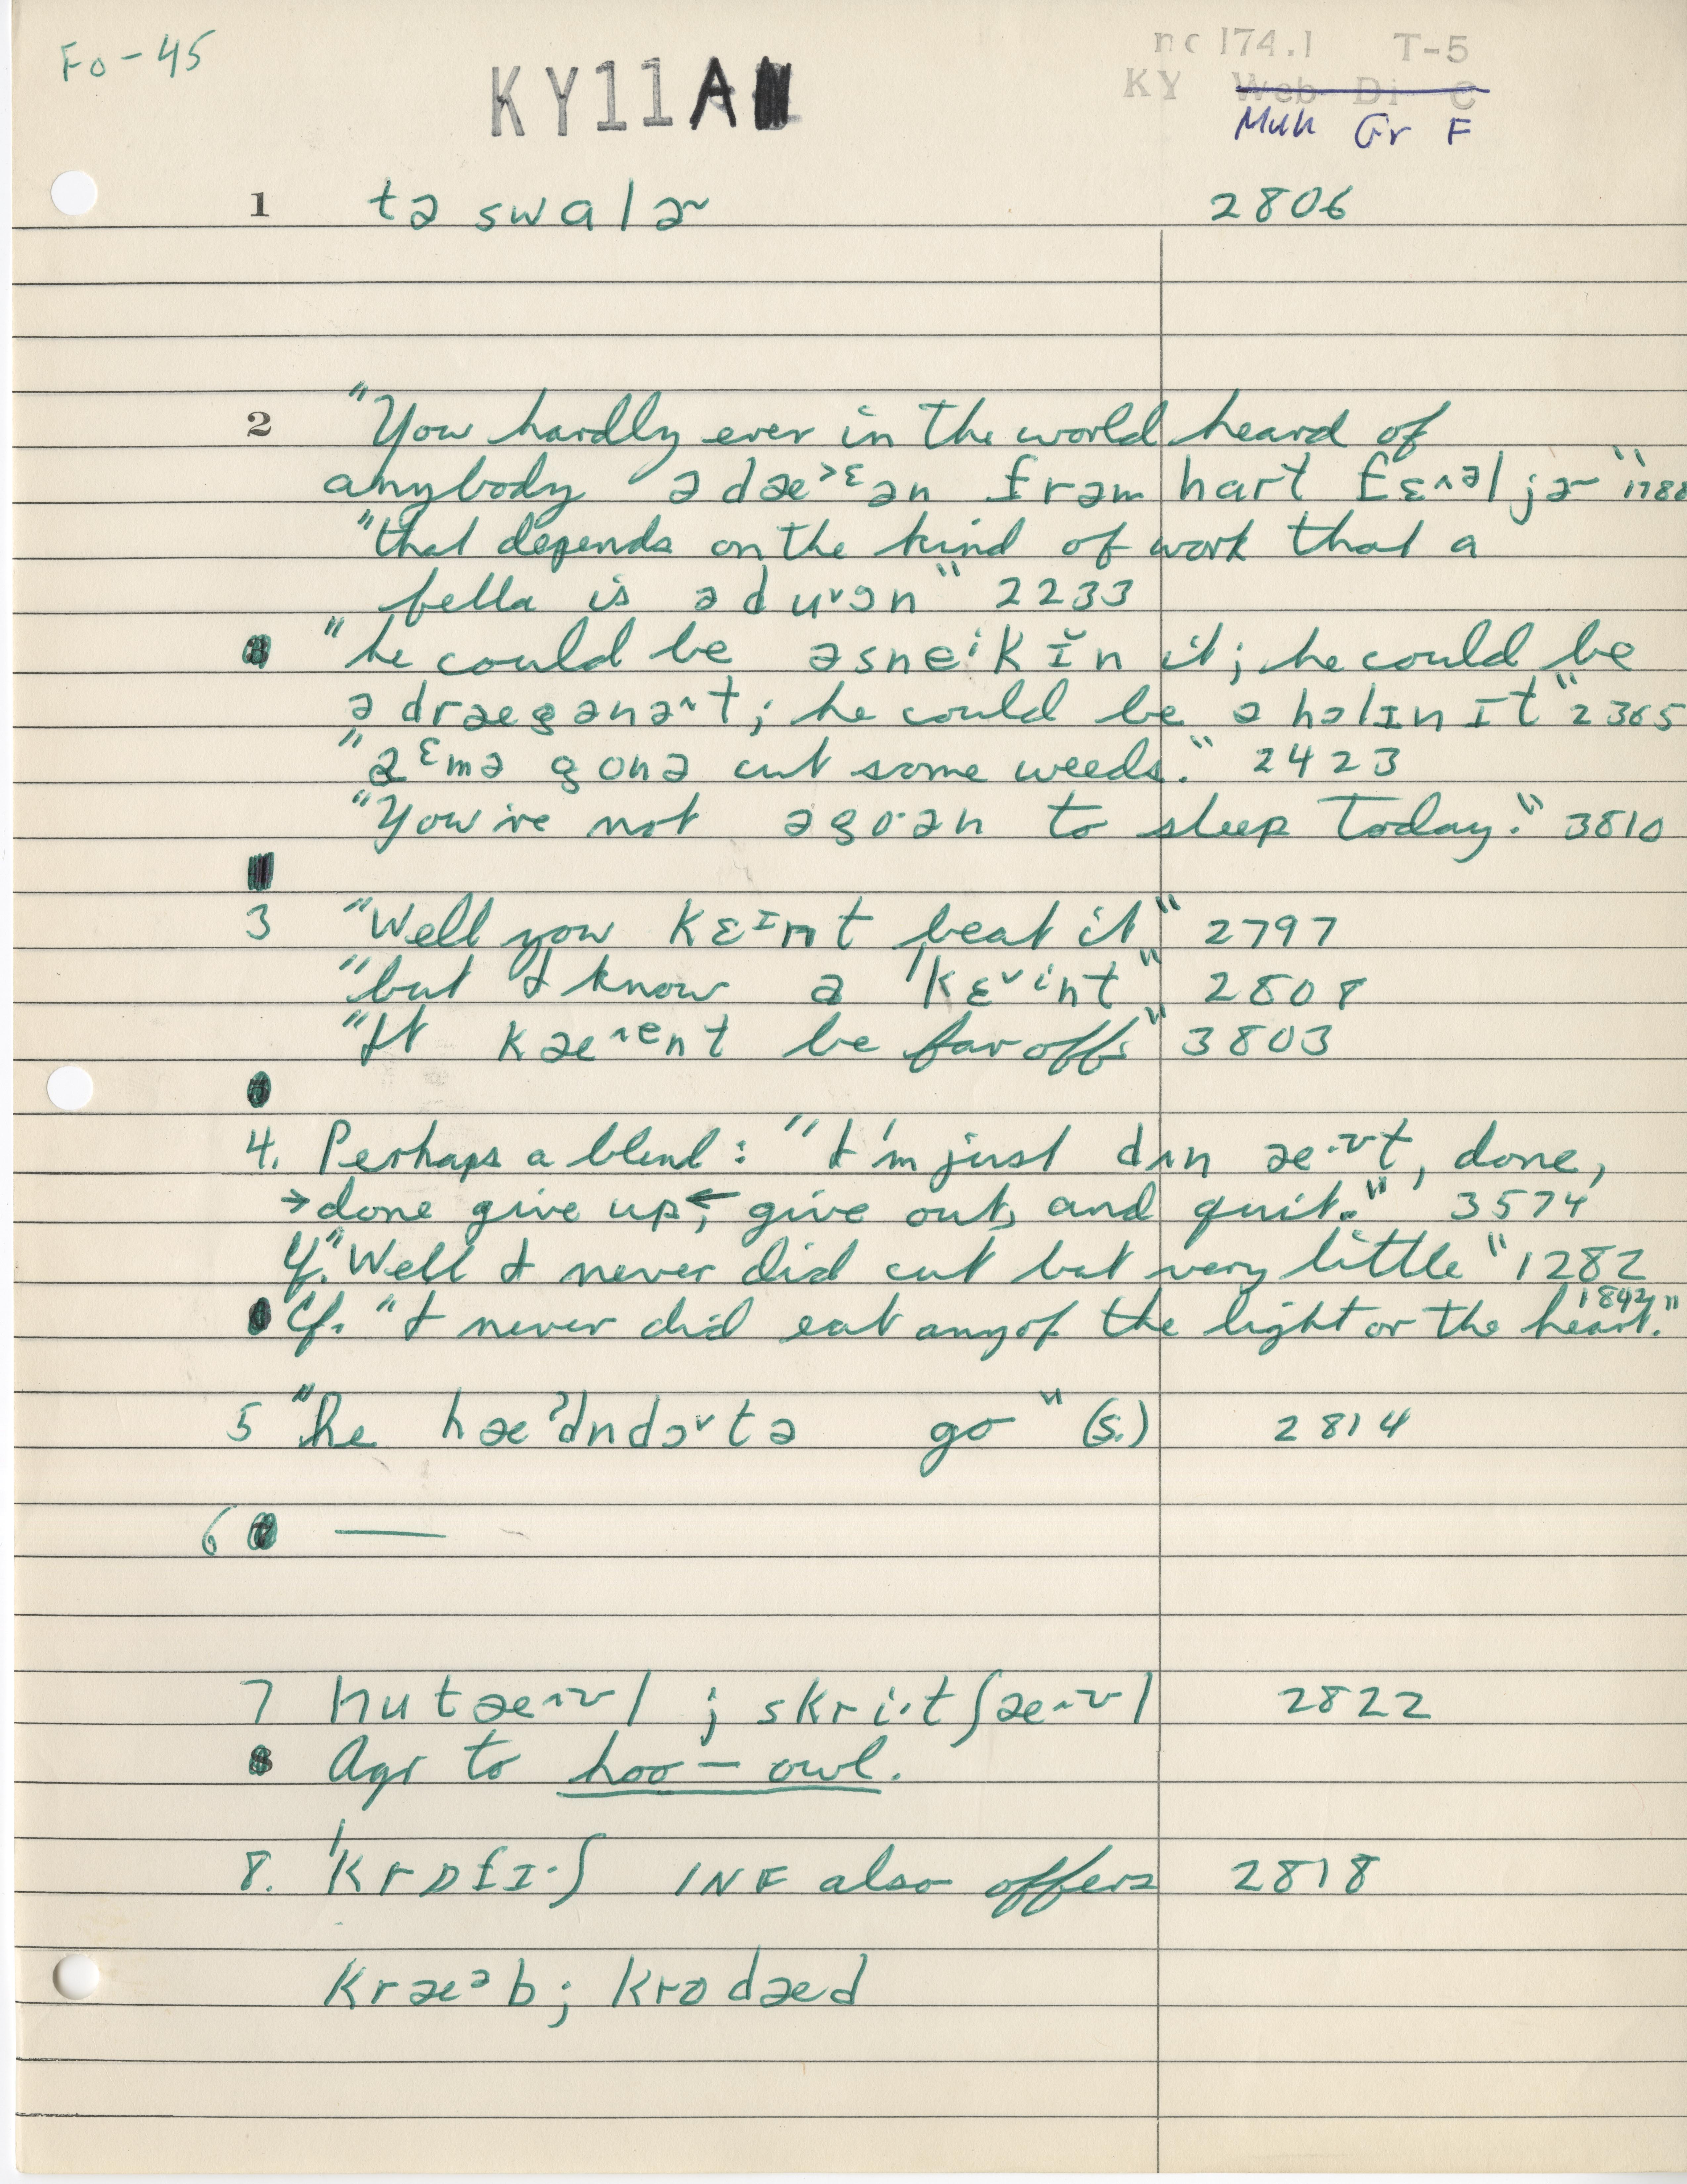 Fo-45
KY11A
nc 174.1 T-5
KY Web Di C
Muh Gr F
1 tə swalɚ 2806
2 "You hardly ever in the world heard of
anybody ədæ˃ᵋən frəm hart fɛ˄ᵊljɚ" 1788
"that depends on the kind of work that a
fella is əduᵛən" 2233
"he could be əsneⁱkĭn it; he could be
ədrægənə˄t; he could be ə hɔlɪn ɪt" 2365
"aᵋmə gonə cut some weeds." 2423
"You're not əgo·ən to sleep today." 3810
3 "Well you kɛᶦnt beat it" 2797
"but I know a ˈkɛᵛⁱnt" 2808
"It kæ˄ᵉnt be far off" 3803
4. Perhaps a blend: "I'm just dʌn æ·ᶷt, done,
→done give up←, give out, and quit." 3574
Cf. "Well I never did cut but very little" 1282
Cf. "I never did eat any of the light or the heart." 1842
5 "he hæˀdndɔᵛtə go" (s.) 2814
6 —
7 hutæ˄ᶷl ; skri·tʃæ˄ᶷl 2822
Agr to hoo-owl.
8. ˈkrɒfɪ·ʃ INF also offers 2818
kræᵊb; krɔdæd